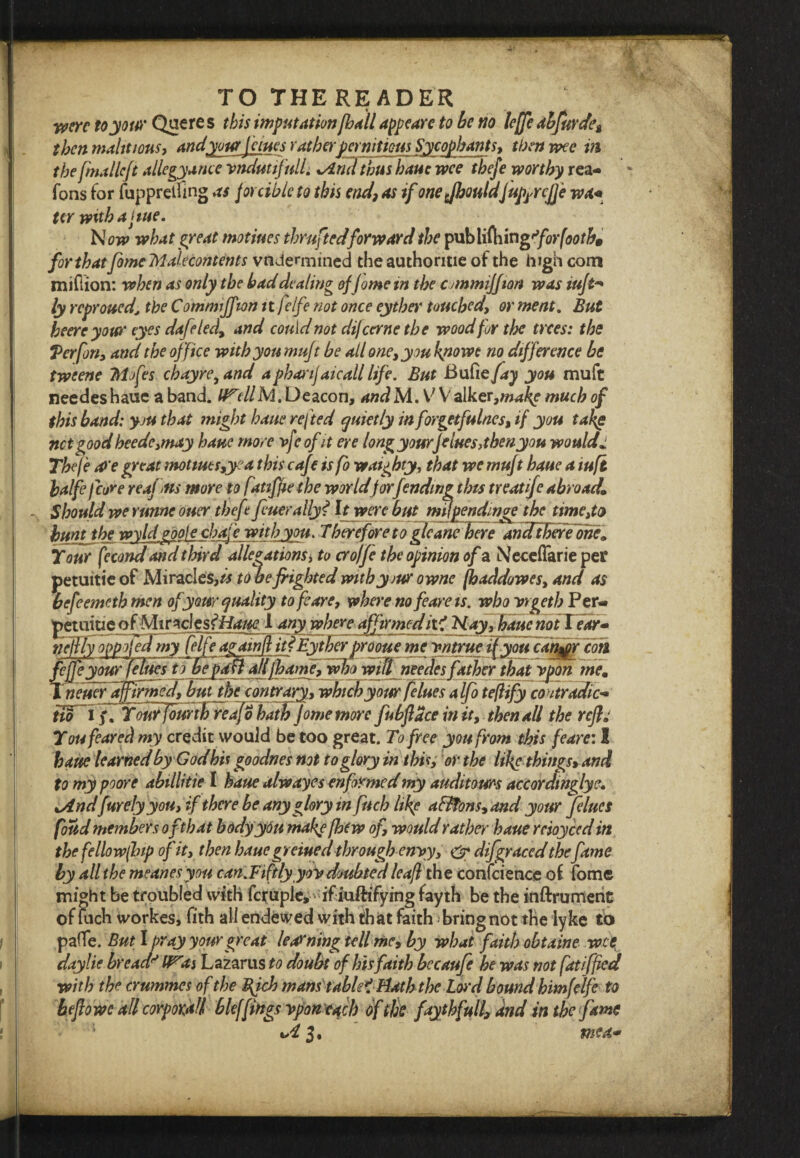 TO THE READER
were to your Queres this imputation ſhall appeare to be no leſſe abſurde,
then malitious, and your ſelues rather pernitious Sycophants, then wee in
the ſmalleſt allegyance vndutifull. And thus haue wee theſe worthy rea-
ſons for ſuppreſſing as forcible to this end, as if one ſhould ſuppreſſe wa-
ter with a ſiue.
Now what great motiues thruſted forward the publiſhing? forſooth,
for that ſome Malecontents vndermined the authoritie of the high com
miſsion: when as only the bad dealing of ſome in the commiſſion was iuſt-
ly reproued, the Commiſſion it ſelfe not once eyther touched, or ment. But
heere your eyes daſeled, and could not diſcerne the wood for the trees: the
Perſon, and the office with you muſt be all one, you knowe no difference be
tweene Moſes chayre, and a phariſaicall life. But Buſie ſay you muſt
needes haue a band. Well M. Deacon, and M. VValker, make much of
this band: you that might haue reſted quietly in forgetfulnes, if you take
not good heede, may haue more vſe of it ere long your ſelues, then you would.
Theſe are great motiues, yea this caſe is ſo waighty, that we muſt haue a iuſt
halfe ſcore reaſons more to ſatiſfie the world for ſending this treatiſe abroad.
Should we runne ouer theſe ſeuerally? It were but miſpending the time, to
hunt the wyld gooſe chaſe with you. Therefore to gleane here and there one.
Your ſecond and third allegations, to croſſe the opinion of a Neceſſarie per
petuitie of Miracles, is to be frighted with your owne ſhaddowes, and as
beſeemeth men of your quality to feare, where no feare is. who vrgeth Per-
petuitie of Miracles? Haue I any where affirmed it? Nay, haue not I ear-
neſtly oppoſed my ſelfe againſt it? Eyther prooue me vntrue if you can, or con
feſſe your ſelues to be paſt all ſhame, who will needes father that vpon me,
I neuer affirmed, but the contrary, which your ſelues alſo teſtify contradic-
tiō 15. Your fourth reaſō hath ſome more ſubſtāce in it, then all the reſt:
You feared my credit would be too great. To free you from this feare: I
haue learned by God his goodnes not to glory in this, or the like things, and
to my poore abillitie I haue alwayes enformed my auditours accordinglye.
And ſurely you, if there be any glory in ſuch like actions, and your ſelues
foūd members of that body you make ſhew of, would rather haue reioyced in
the fellowſhip of it, then haue greiued through envy, & diſgraced the ſame
by all the meanes you can. Fiftly yow doubted leaſt the conſcience of ſome
might be troubled with ſcruple, if iuſtifying fayth be the inſtrument
of ſuch workes, ſith all endewed with that faith bring not the lyke to
paſſe. But I pray your great learning tell me, by what faith obtaine wee
daylie bread? Was Lazarus to doubt of his faith becauſe he was not ſatiſfied
with the crummes of the Rich mans table? Hath the Lord bound himſelfe to
beſtowe all corporall bleſſings vpon each of the faythfull, and in the ſame
A 3. mea-